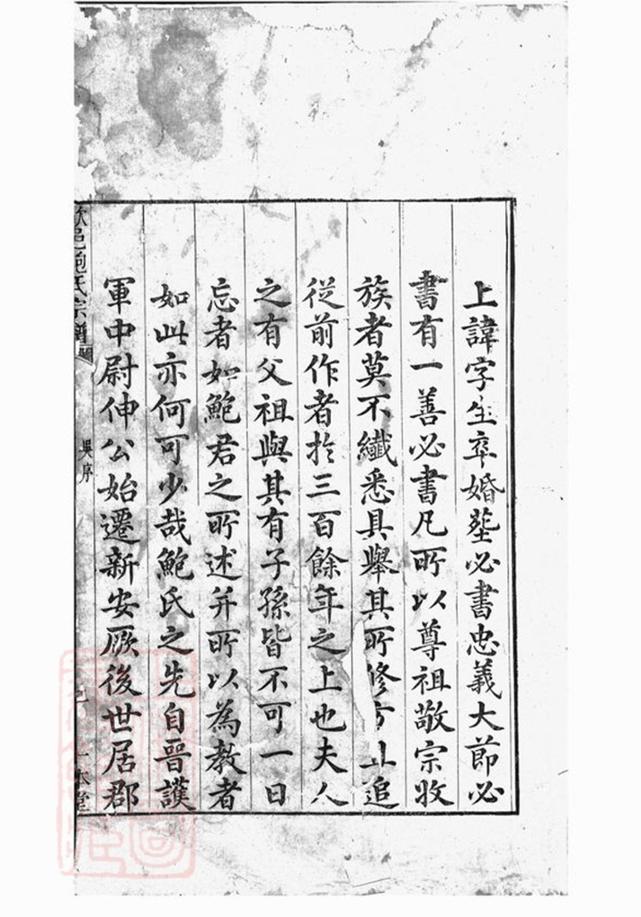 上諱字生卒婚塟必書忠義大節必
書有一善必書凡所以尊祖敬宗收
族者莫不纖悉具舉其所修方止追
從前作者於三百餘年之上也夫人
之有父祖與其有子孫皆不可一日
忘者如鮑君之所述并所以為教者
如此亦何可少哉鮑氏之先自晉護
軍中尉伸公始遷新安厥後世居郡
歙邑鮑氏宗譜
吳序